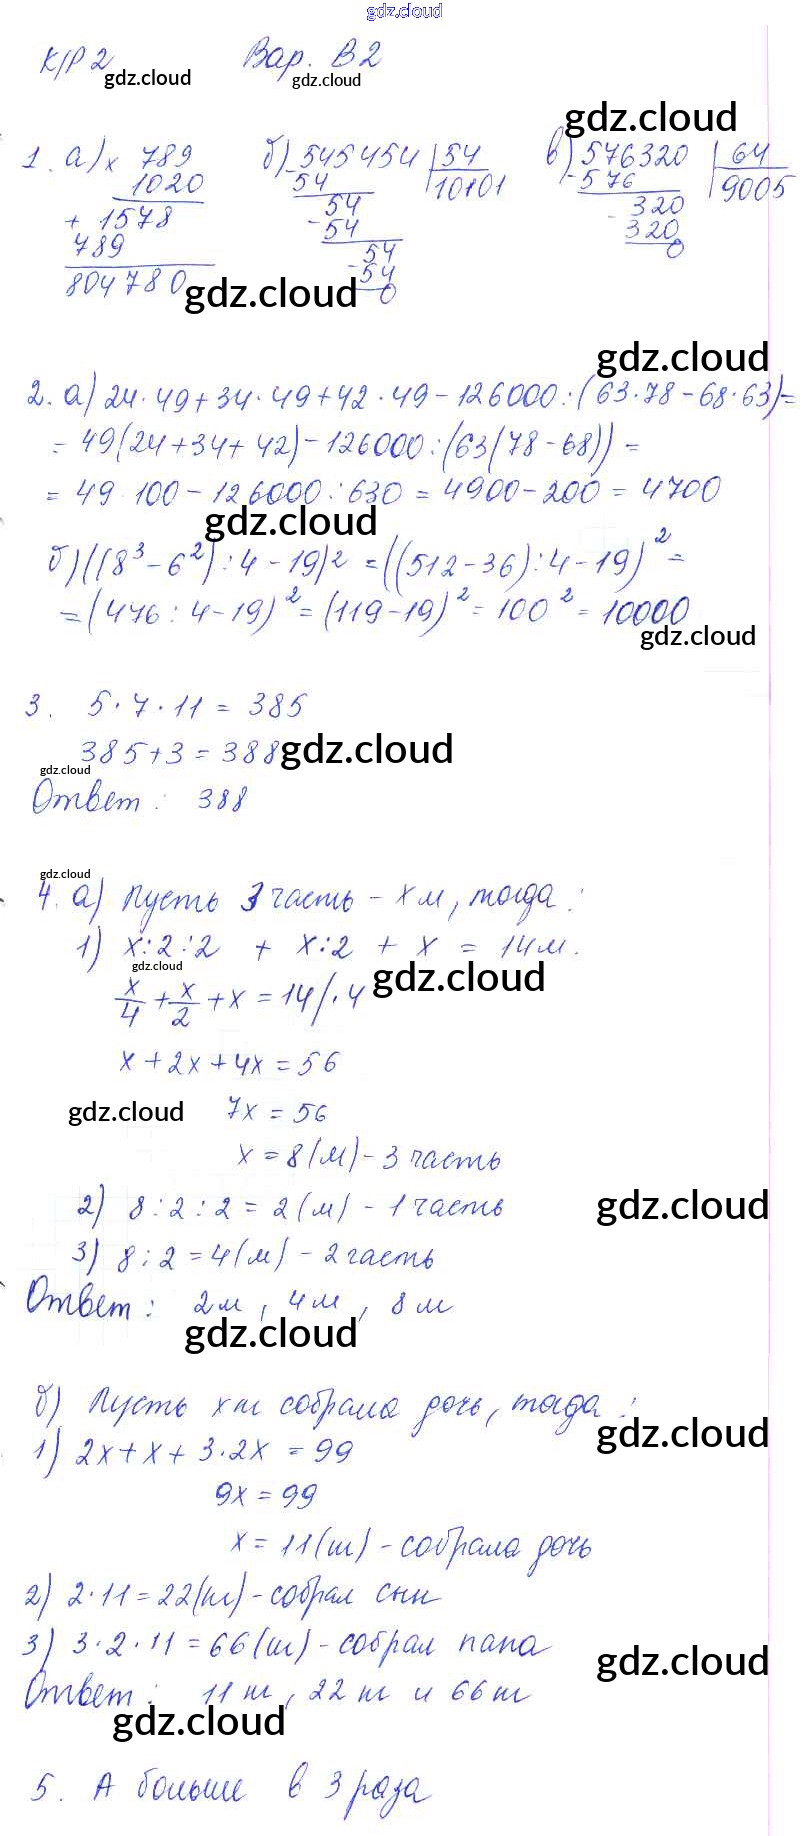 gdz.cloud
К/Р 2 Вар. В2
gdz.cloud gdz.cloud
gdz.cloud
1. а) × 789 б) - 545454 | 54 в) - 576320 | 64
1020 54 10101 576 9005
+ 1578 54 320
789 - 54 - 320
804780 54 0
- 54
0
gdz.cloud
gdz.cloud
2. а) 24·49+34·49+42·49-126000:(63·78-68·63)=
= 49(24+34+42)-126000:(63(78-68))=
= 49·100-126000:630=4900-200=4700
gdz.cloud
б) ((8³-6²):4-19)2=((512-36):4-19)²=
=(476:4-19)²=(119-19)²=100²=10000
gdz.cloud
3. 5·7·11=385
385+3=388
gdz.cloud
gdz.cloud
Ответ: 388
gdz.cloud
4. а) Пусть 3 часть - х м, тогда:
1) х:2:2 + х:2 + х = 14м.
gdz.cloud
gdz.cloud
х/4 + х/2 + х = 14 /·4
х+2х+4х=56
gdz.cloud 7х=56
х=8(м)-3 часть
2) 8:2:2=2(м)-1 часть
gdz.cloud
3) 8:2=4(м)-2 часть
Ответ: 2м, 4м, 8м
gdz.cloud
б) Пусть х ш собрала дочь, тогда:
gdz.cloud
1) 2х+х+3·2х=99
9х=99
х=11(ш)-собрала дочь
2) 2·11=22(ш)-собрал сын
3) 3·2·11=66(ш)-собрал папа
gdz.cloud
Ответ: 11ш, 22ш и 66ш
gdz.cloud
5. А больше в 3 раза
gdz.cloud